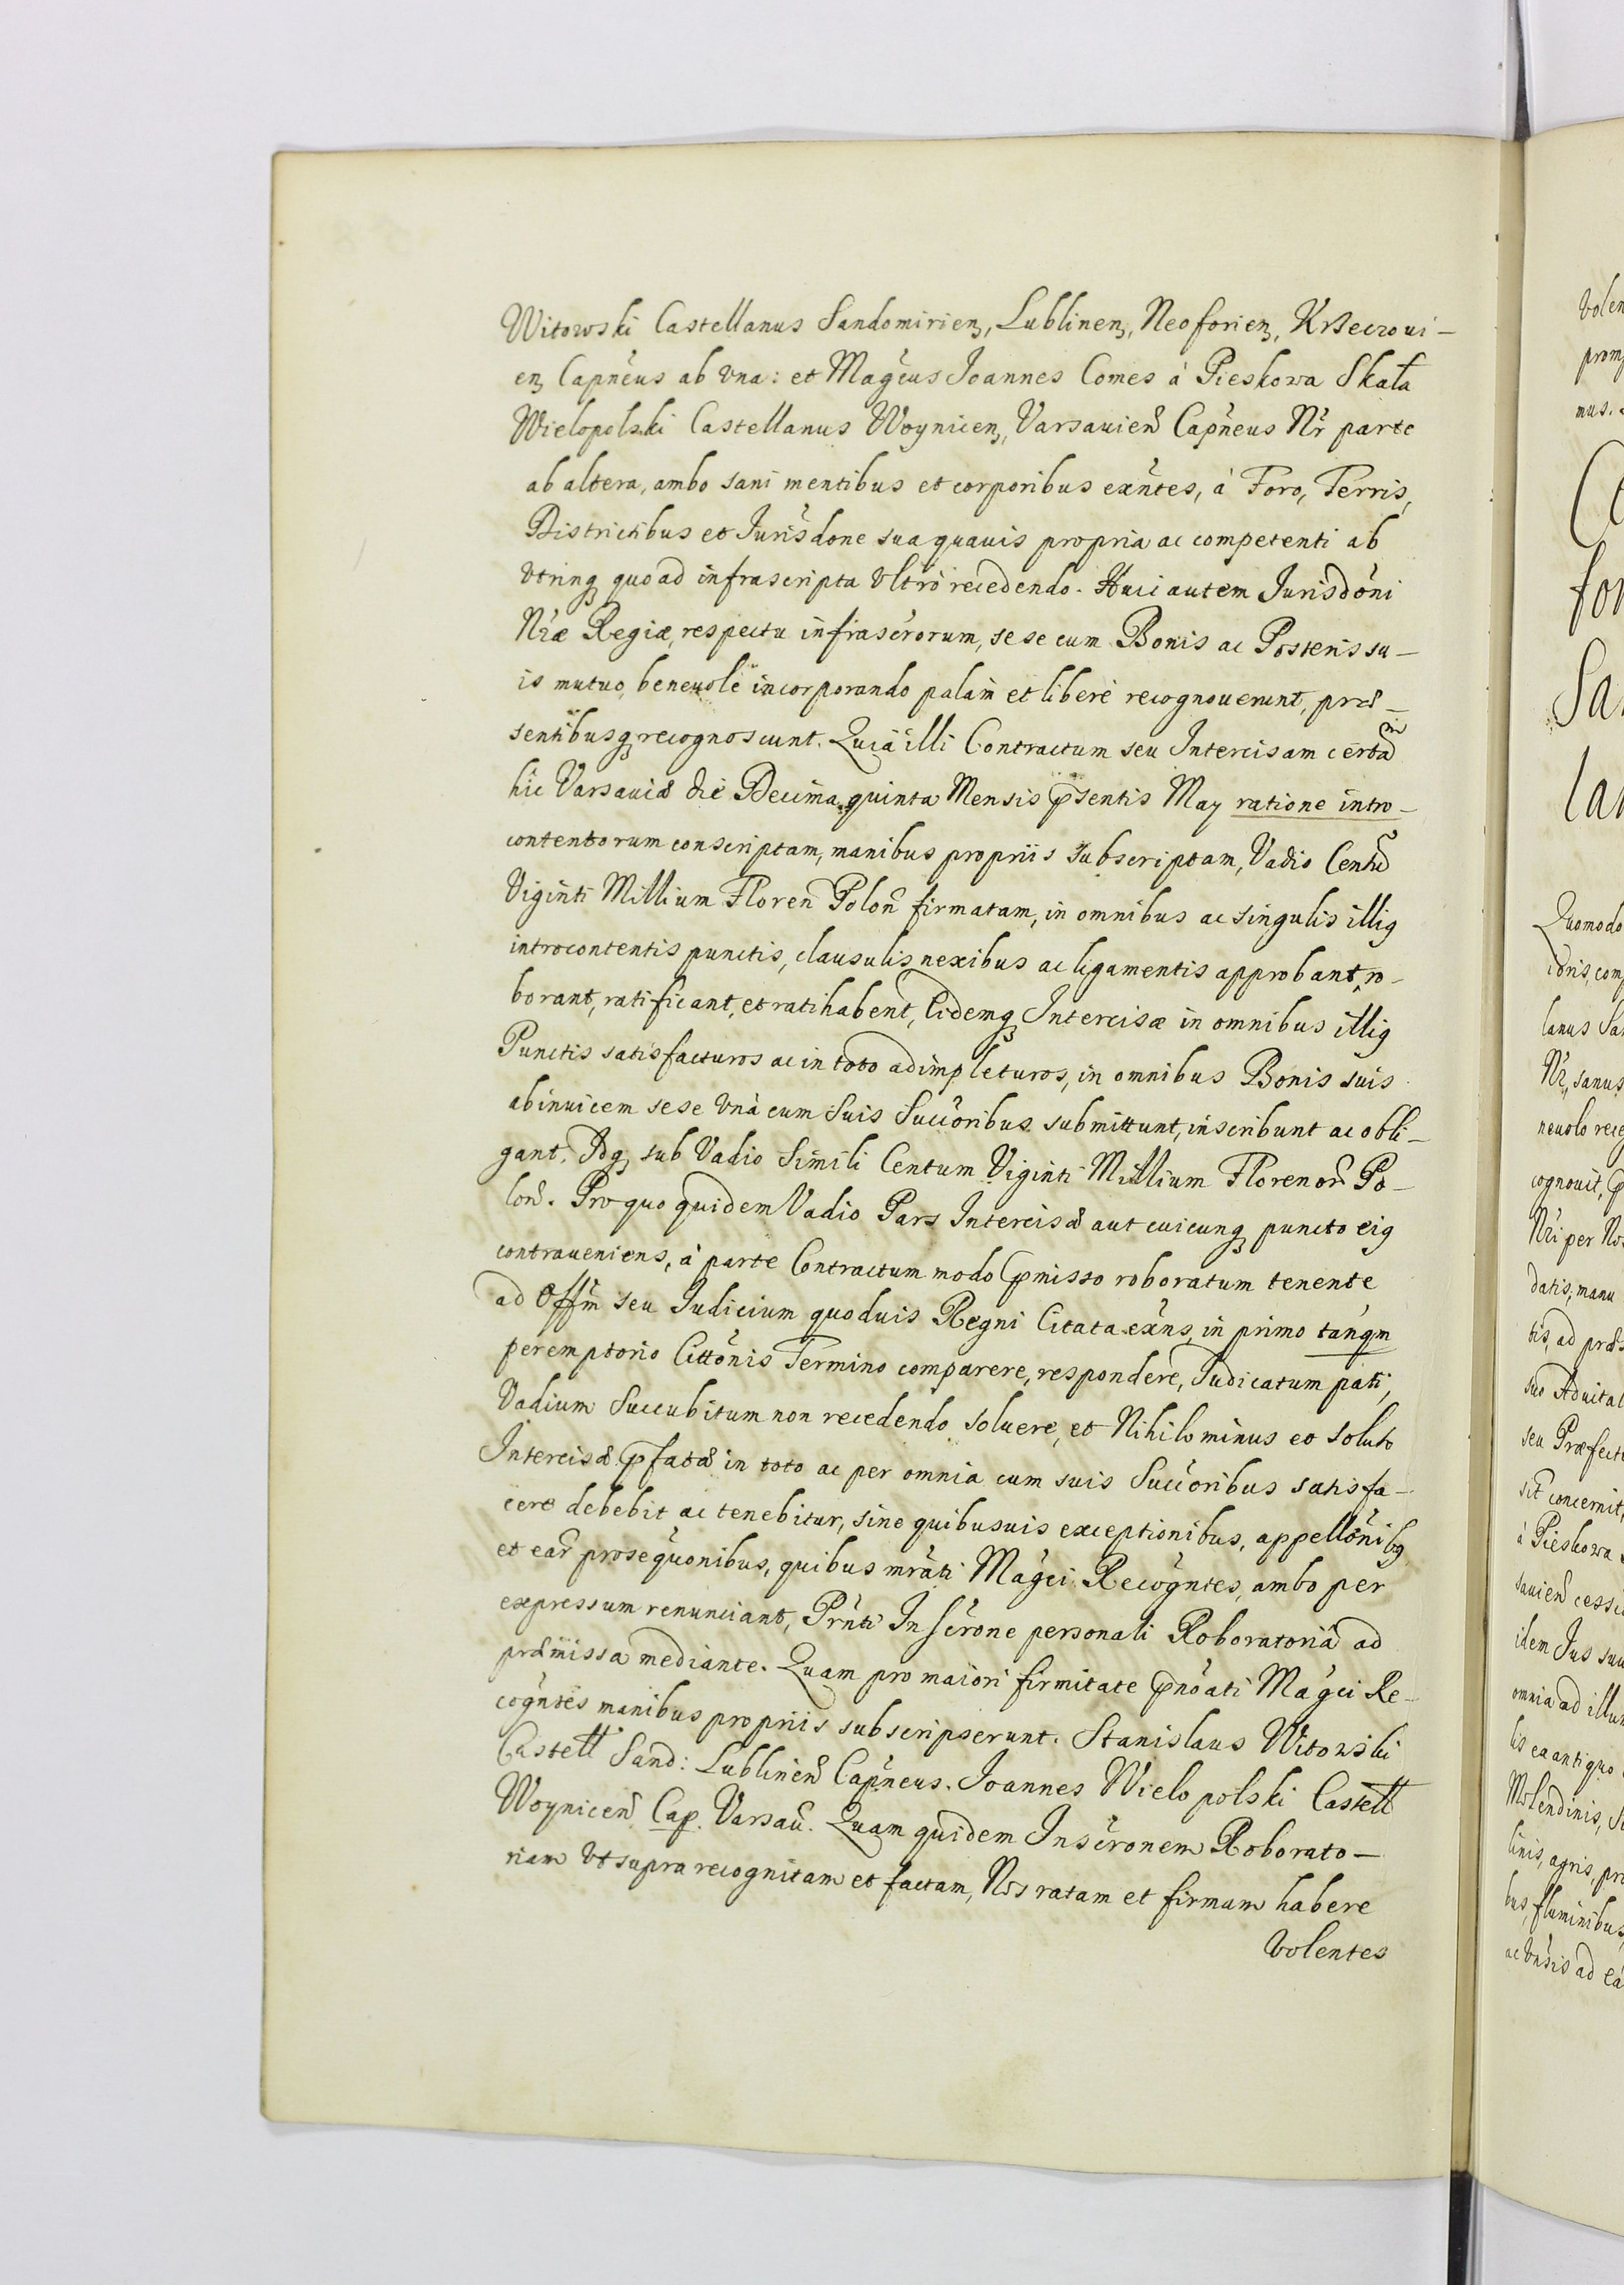 Witowski Castellanus Sandomirien, Lublinen, Neoforien, Krzeczoui-
en, Capneus ab vna: et Magcus Joannes Comes à Pieskowa Skała
Wielopolski Castellanus Woynicen, Varsauien Capneus Nr parte
ab altera, ambo sani mentibus et corporibus exntes, à Foro, Terris,
Districtibus et Jurisdone sua quauis propria ac competenti ab
vtrinq quoad infrascripta vltrò recedendo. Huic autem Jurisdoni
Nræ Regiæ, respectu infrascrorum, sese cum Bonis ac Posteris su-
is mutuo, beneuolè incorporando palam et liberè recognouerunt, præ-
sentibusq recognoscunt. Quià illi Contractum seu Intercisam certam
hic Varsauiæ die Decima quinta Mensis pntis May ratione intro-
contentorum conscriptam, manibus propriis subscriptam, Vadio Centu
Viginti Millium Floren Polon firmatam, in omnibus ac singulis illig
introcontentis punctis, clausulis nexibus ac ligamentis approbant, ro-
borant, ratificant, et ratihabent, Eidemq Intercisæ in omnibus illig
Punctis satisfacturos ac in toto adimpleturos, in omnibus Bonis suis
abinuicem sese vnà cum Suis Succoribus submittunt, inscribunt ac obli-
gant. Idq sub Vadio Simili Centum Viginti Millium Florenor Po-
lon. Pro quo quidem Vadio Pars Intercisæ aut cuicunq puncto eig
contraueniens, à parte Contractum modo pmisso roboratum tenente
ad Offm seu Judicium quoduis Regni Citata exns, in primo tanqm
peremptorio Cittonis Termino comparere, respondere, Judicatum pati,
Vadium Succubitum non recedendo soluere, et Nihilominus eo soluto
Intercisæ pfatæ in toto ac per omnia cum suis Succoribus satisfa-
cere debebit ac tenebitur, sine quibusuis exceptionibus, appellonibg
et ear prosequonibus, quibus mrati Magci Recogntes, ambo per
expressum renunciant, Prnti Inscrone personali Roboratoria ad
præmissa mediante. Quam pro maiori firmitate pnoati Magci Re-
cogntes manibus propriis subscripserunt. Stanislaus Witowski
Castell Sand: Lublinen Capneus. Joannes Wielopolski Castell
Woynicen Cap. Varsau. Quam quidem Inscronem Roborato-
riam vt supra recognitam et factam, Nos ratam et firmam habere
volentes
volen
prom
mus.
Quomodo
lanus Sa
Nr, sanus
neuolo rece
cognouit,
Nri per No
datis, manu
tis, ad præs
suo Aduital
seu Præfect
sit concernit,
à Pieskowa
sauien cess
idem Jus suu
omnia ad illu
lis ea antiquo
Molendinis, S
linis, agris, pr
bus, fluminibus,
ac vnsis ad ea